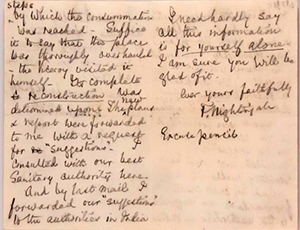 steps
by which the consummation
was reached - Suffice
it to say that the place
was thoroughly overhauled
- the Viceroy visited it
himself Its complete
reconstruction was
determined upon: The new plans
& report were forwarded
to me with a request
for "suggestions". I
consulted with our best
Sanitary authority here.
And by last mail I
forwarded our "suggestions"
to the authorities in India
I need hardly say
all this information
is for yourself alone.
I am sure you will be
glad of it.
ever yours faithfully
F. Nightingale
Excuse pencil